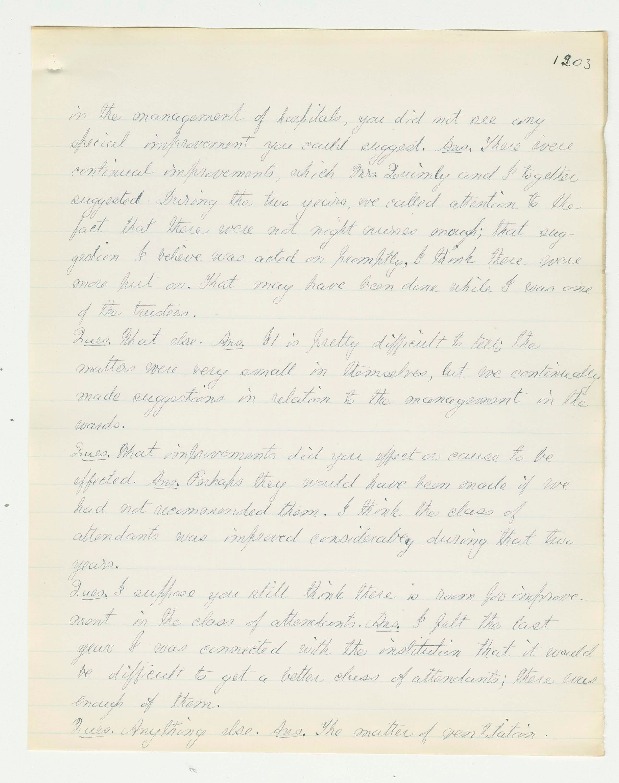 1203
in the management of hospitals, you did not see any
special improvement you could suggest. Ans. There were
continual improvements, which Mrs. Quimby and I together
suggested. During the two years, we called attention to the
fact that there were not night nurses enough; that sug-
gestion I believe was acted on promptly, I think there were
more put on. That may have been done while I was one
of the trustees.
Ques. What else. Ans. It is pretty difficult to tell; the
matters were very small in themselves, but we continually
made suggestions in relation to the management in the
wards.
Ques. What improvements did you effect or cause to be
effected. Ans. Perhaps they would have been made if we
had not recommended them. I think the class of
attendants was improved considerably during that two
years.
Ques. I suppose you still think there is room for improve-
ment in the class of attendants. Ans. I felt the last
year I was connected with the institution that it would
be difficult to get a better class of attendants; there was
enough of them.
Ques. Anything else. Ans. The matter of ventilation.